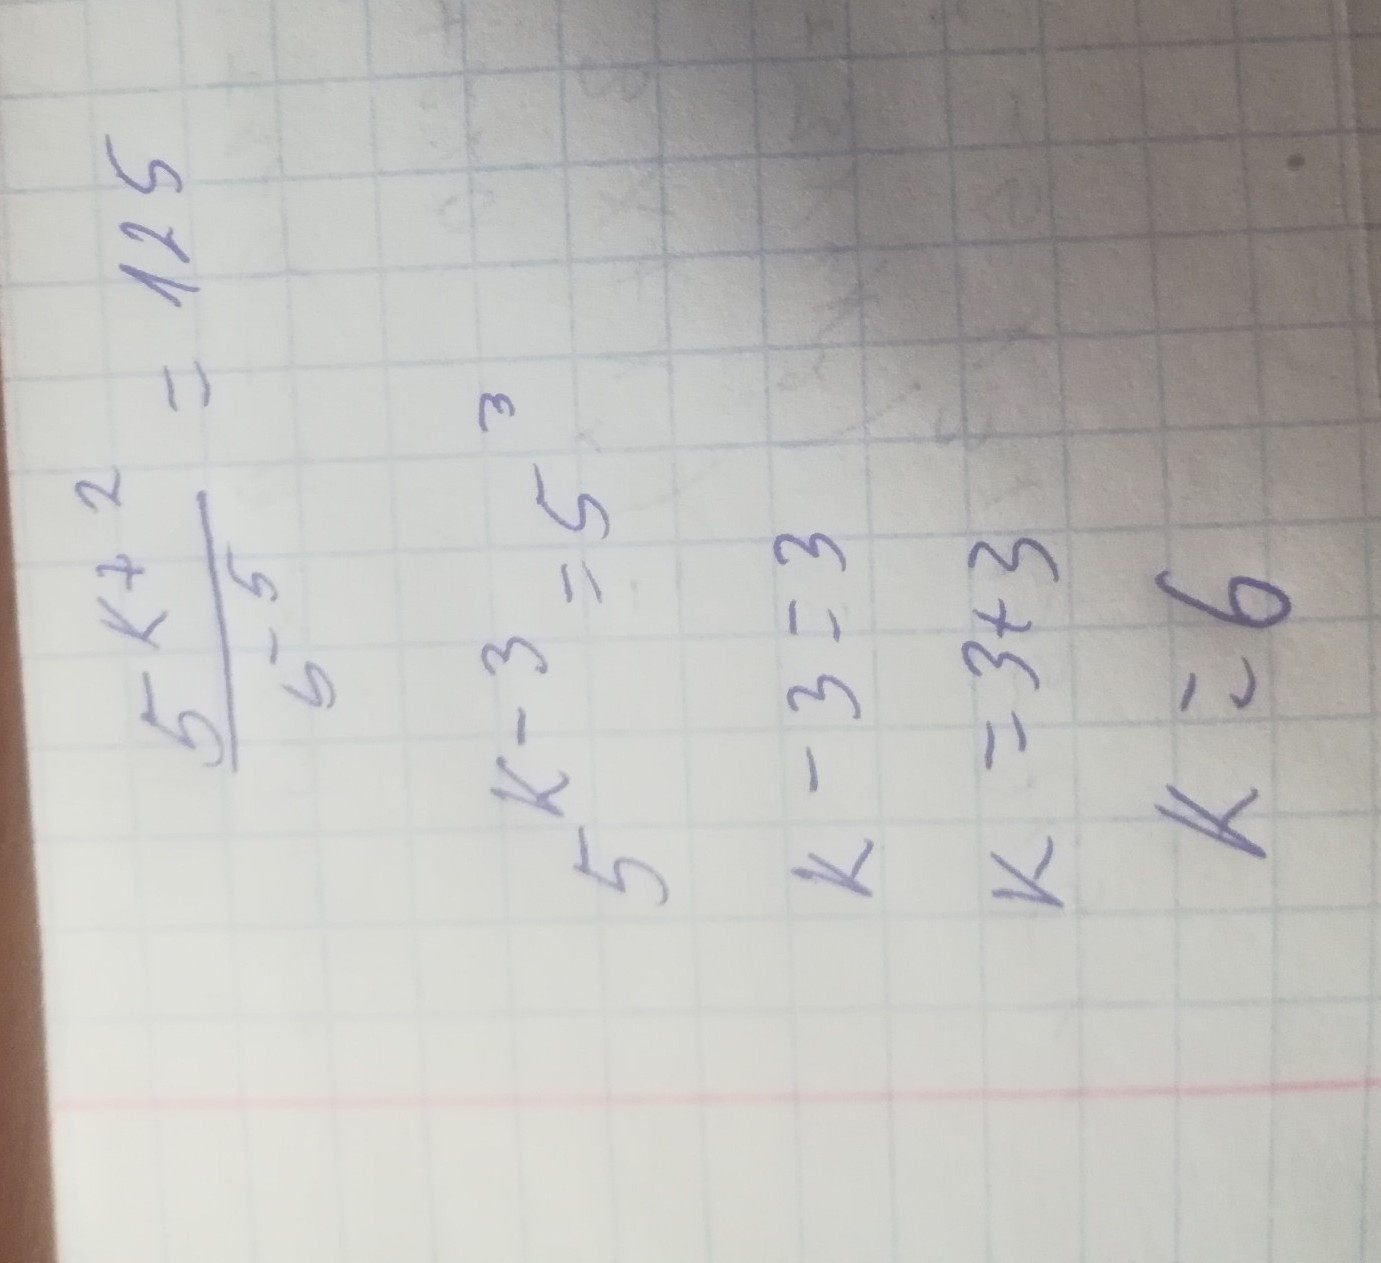 5^{k+2} / 5^{-5} = 125
5^{k-3} = 5^3
k - 3 = 3
k = 3+3
k = 6